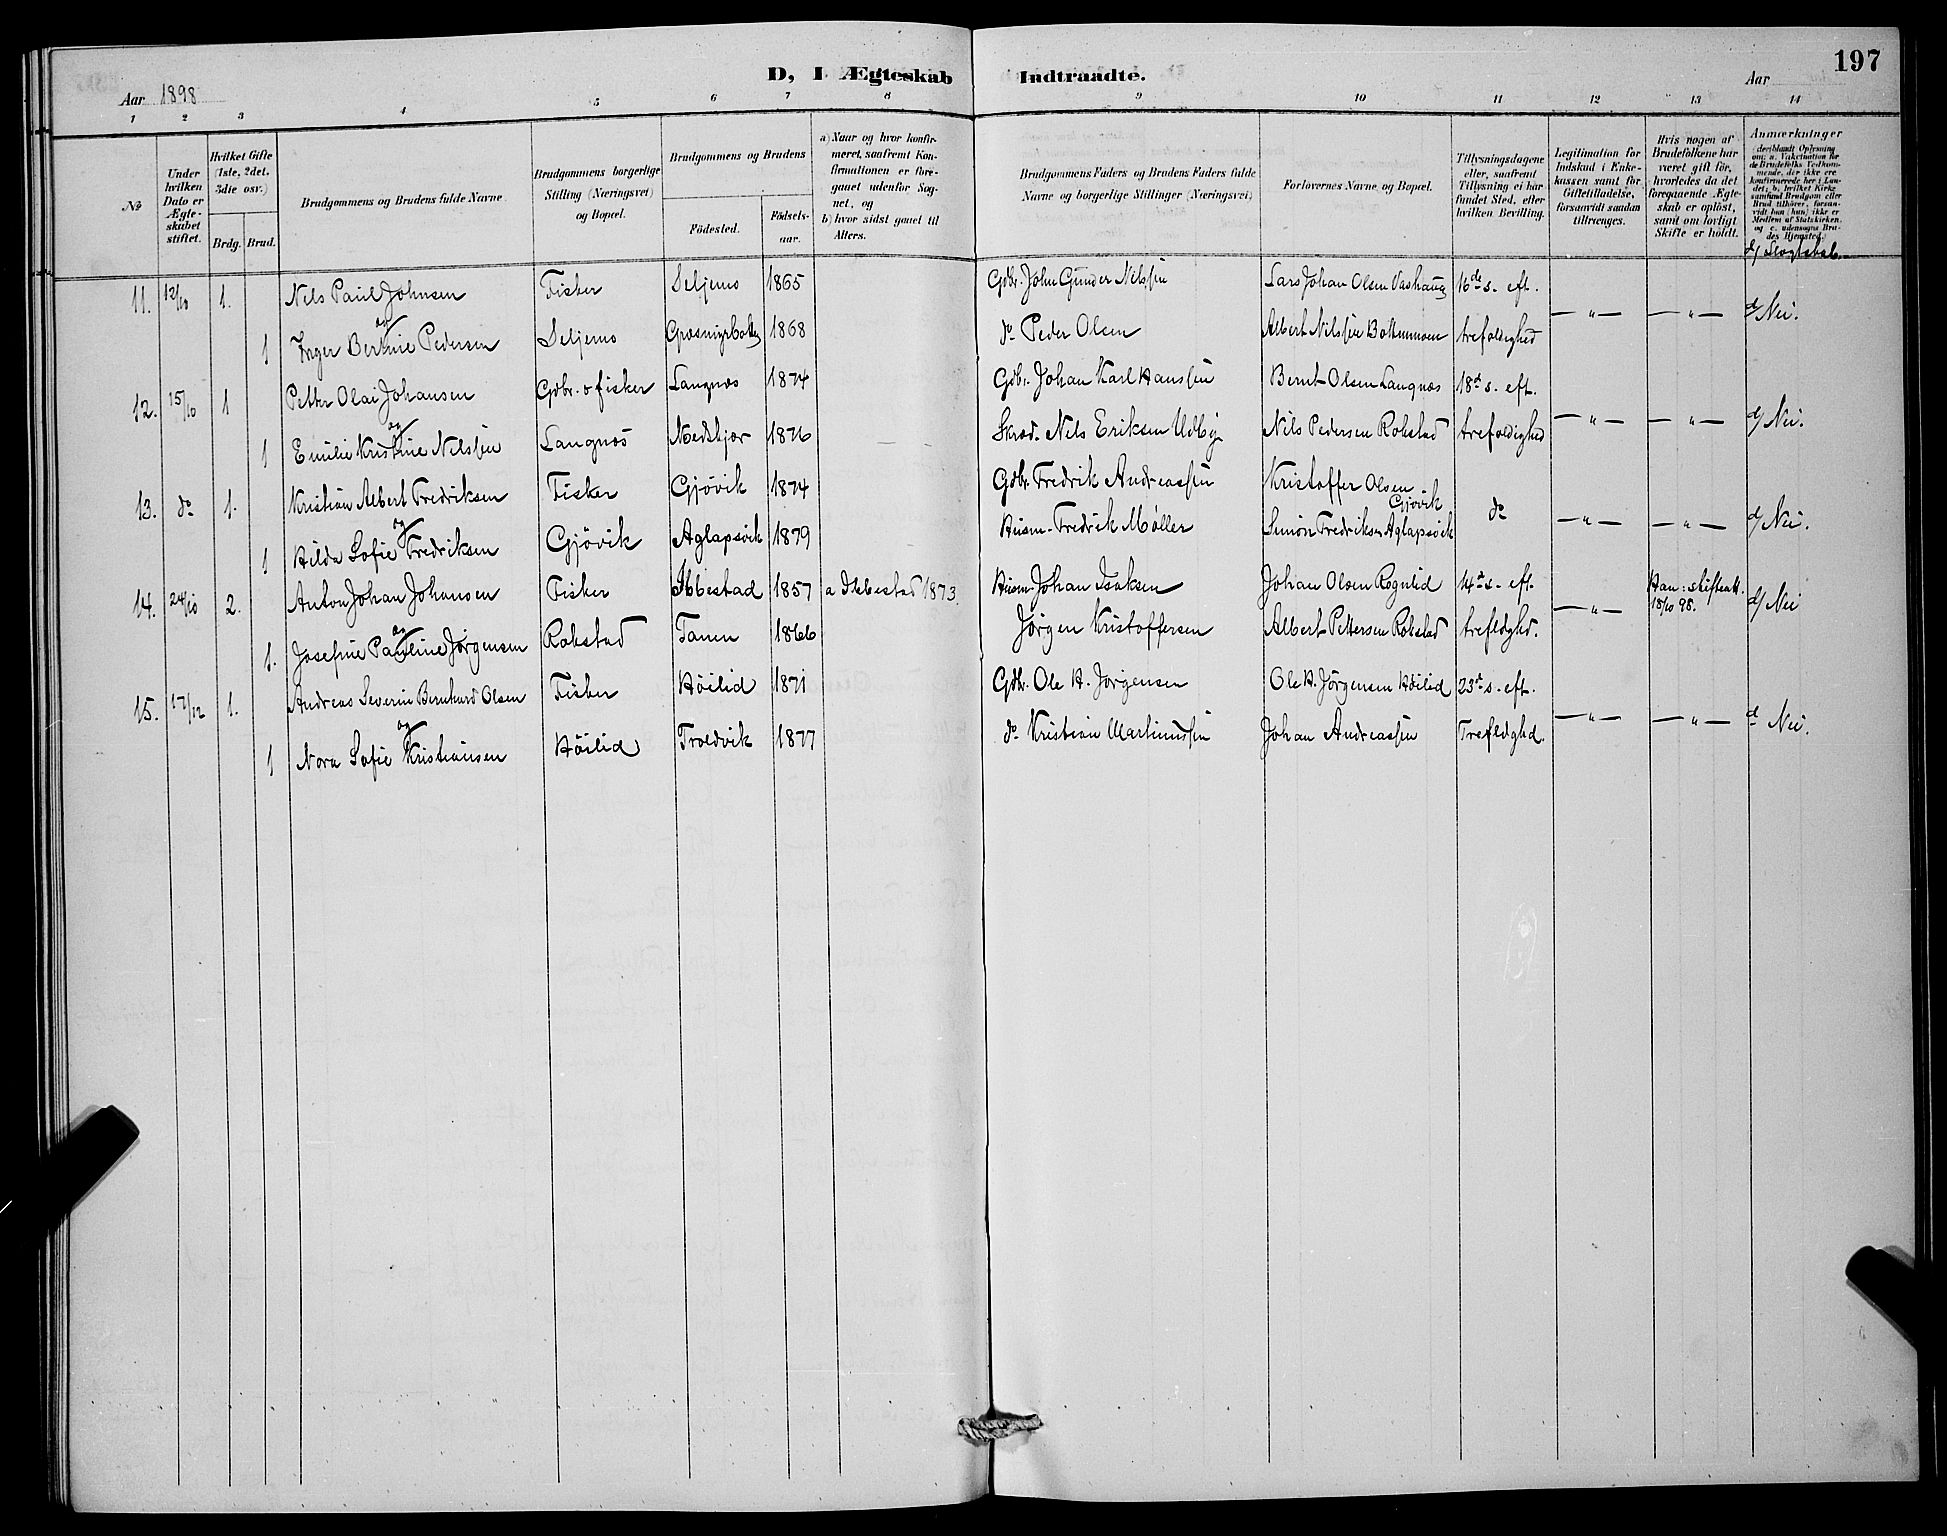 197
D, I Ægteskab Indtraadte.
Aar 1898 Aar
1 2 3 4 5 6 7 8 9 10 11 12 13 14
No
Under hvilken Dato er Ægteskabet stiftet.
Hvilket Gifte (1ste, 2det, 3die osv.)
Brdg. Brud.
Brudgommens og Brudens fulde Navne.
Brudgommens borgerlige Stilling (Næringsvei) og Bopæl.
Brudgommens og Brudens
Fødested. Fødselsaar.
a) Naar og hvor konfirmeret, saafremt Konfirmationen er foregaaet udenfor Sognet, og
b) hvor sidst gaaet til Alters.
Brudgommens Faders og Brudens Faders fulde Navne og borgerlige Stillinger (Næringsvei)
Forlovernes Navne og Bopæl.
Tillysningsdagene eller, saafremt Tillysning ei har fundet Sted, efter hvilken Bevilling.
Legitimation for Indskud i Enkekassen samt for Giftetilladelse, forsaavidt saadan tiltrænges.
Hvis nogen af Brudefolkene har været gift før, hvorledes da det foregaaende Ægteskab er opløst, samt om lovligt Skifte er holdt.
Anmærkninger
(deriblandt Oplysning om: a. Vakcination for de Brudefolks Vedkommende, der ikke ere konfirmerede her i Landet; b. hvilket Kirkesamfund Brudgom eller Brud tilhører, forsaavidt han (hun) ikke er Medlem af Statskirken, og c. udensogns Brudes Hjemsted.)
d/ Slægtskab.
11. 12/10 1. Nels Paul Johnsen Fisker Seljenes 1865 Gdbr. John Gunder Nilssen Lars Johan Olsen Vashaug 16de s. eft. — " — — " — d/ Nei.
og
1 Inger Bertine Pedersen Seljenes Græsmyrbotten 1868 do Peder Olsen Albert Nilssen trefoldighed
12. 15/10 1 Petter Olai Johansen Gdbr. & fisker Langnes 1874 Gdbr. Johan Karl Hanssen Bernt Olsen Langnæs 18de s. eft. — " — — " — d/ Nei.
og
1 Emilie Kristine Nilssen Langnæs Nedskjær 1876 Skræd. Nels Eriksen Udby Nils Pedersen Rokstad trefoldighed
13. do 1. Kristian Albert Fredriksen Fisker Gjøvik 1874 Gdbr. Fredrik Andreassen Kristoffer Olsen Gjøvik do — " — — " — d/ Nei.
og
1 Hilda Sofie Fredriksen Gjøvik Aglapsvik 1879 Husm. Fredrik Møller Simon Fredriksen Aglapsvik
14. 24/10 2. Anton Johan Johansen Fisker Ibbestad 1857 a Ibbestad 1873. Husm. Johan Isaksen Johan Olsen Rognlid 14de s. eft. — " — Han: skifteatt. 18/10 98. d/ Nei
og
1. Josefine Pauline Jørgensen Rokstad Tanen 1866 Jørgen Kristoffersen Albert Pettersen Rokstad trefldghd.
15. 17/12 1. Andreas Severin Bernhard Olsen Fisker Høilid 1871 Gdbr. Ole H. Jørgensen Ole H. Jørgensen Høilid 23de s. eft. — " — — " — d Nei.
og
1 Nora Sofie Kristiansen Høilid Troldvik 1877 do Kristian Martinussen Johan Andreassen Trefldghd.